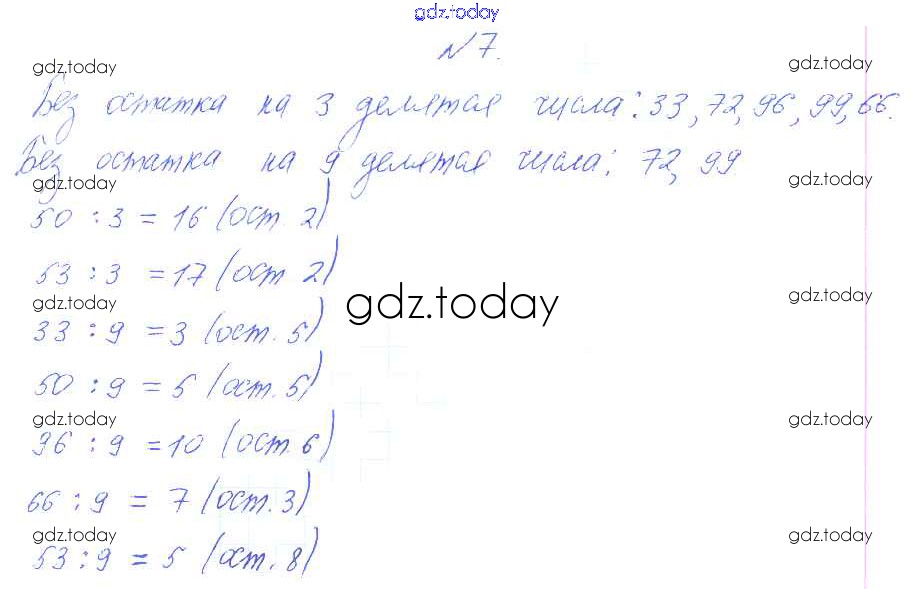 gdz.today
№7.
gdz.today gdz.today
Без остатка на 3 делятся числа: 33, 72, 96, 99, 66.
Без остатка на 9 делятся числа: 72, 99
gdz.today gdz.today
50 : 3 = 16 (ост. 2)
53 : 3 = 17 (ост. 2)
gdz.today gdz.today gdz.today
33 : 9 = 3 (ост. 5)
50 : 9 = 5 (ост. 5)
gdz.today gdz.today
96 : 9 = 10 (ост. 6)
66 : 9 = 7 (ост. 3)
gdz.today gdz.today
53 : 9 = 5 (ост. 8)